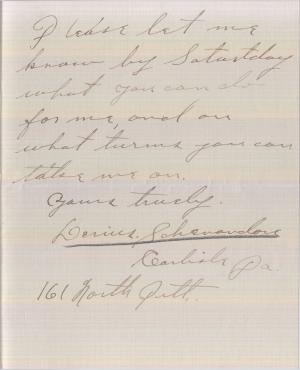 Please let me
know by Saturday
what you can do
for me, and on
what turms you can
take me on.
Yours truely.
Carlisle Pa.
161 North Pitt.